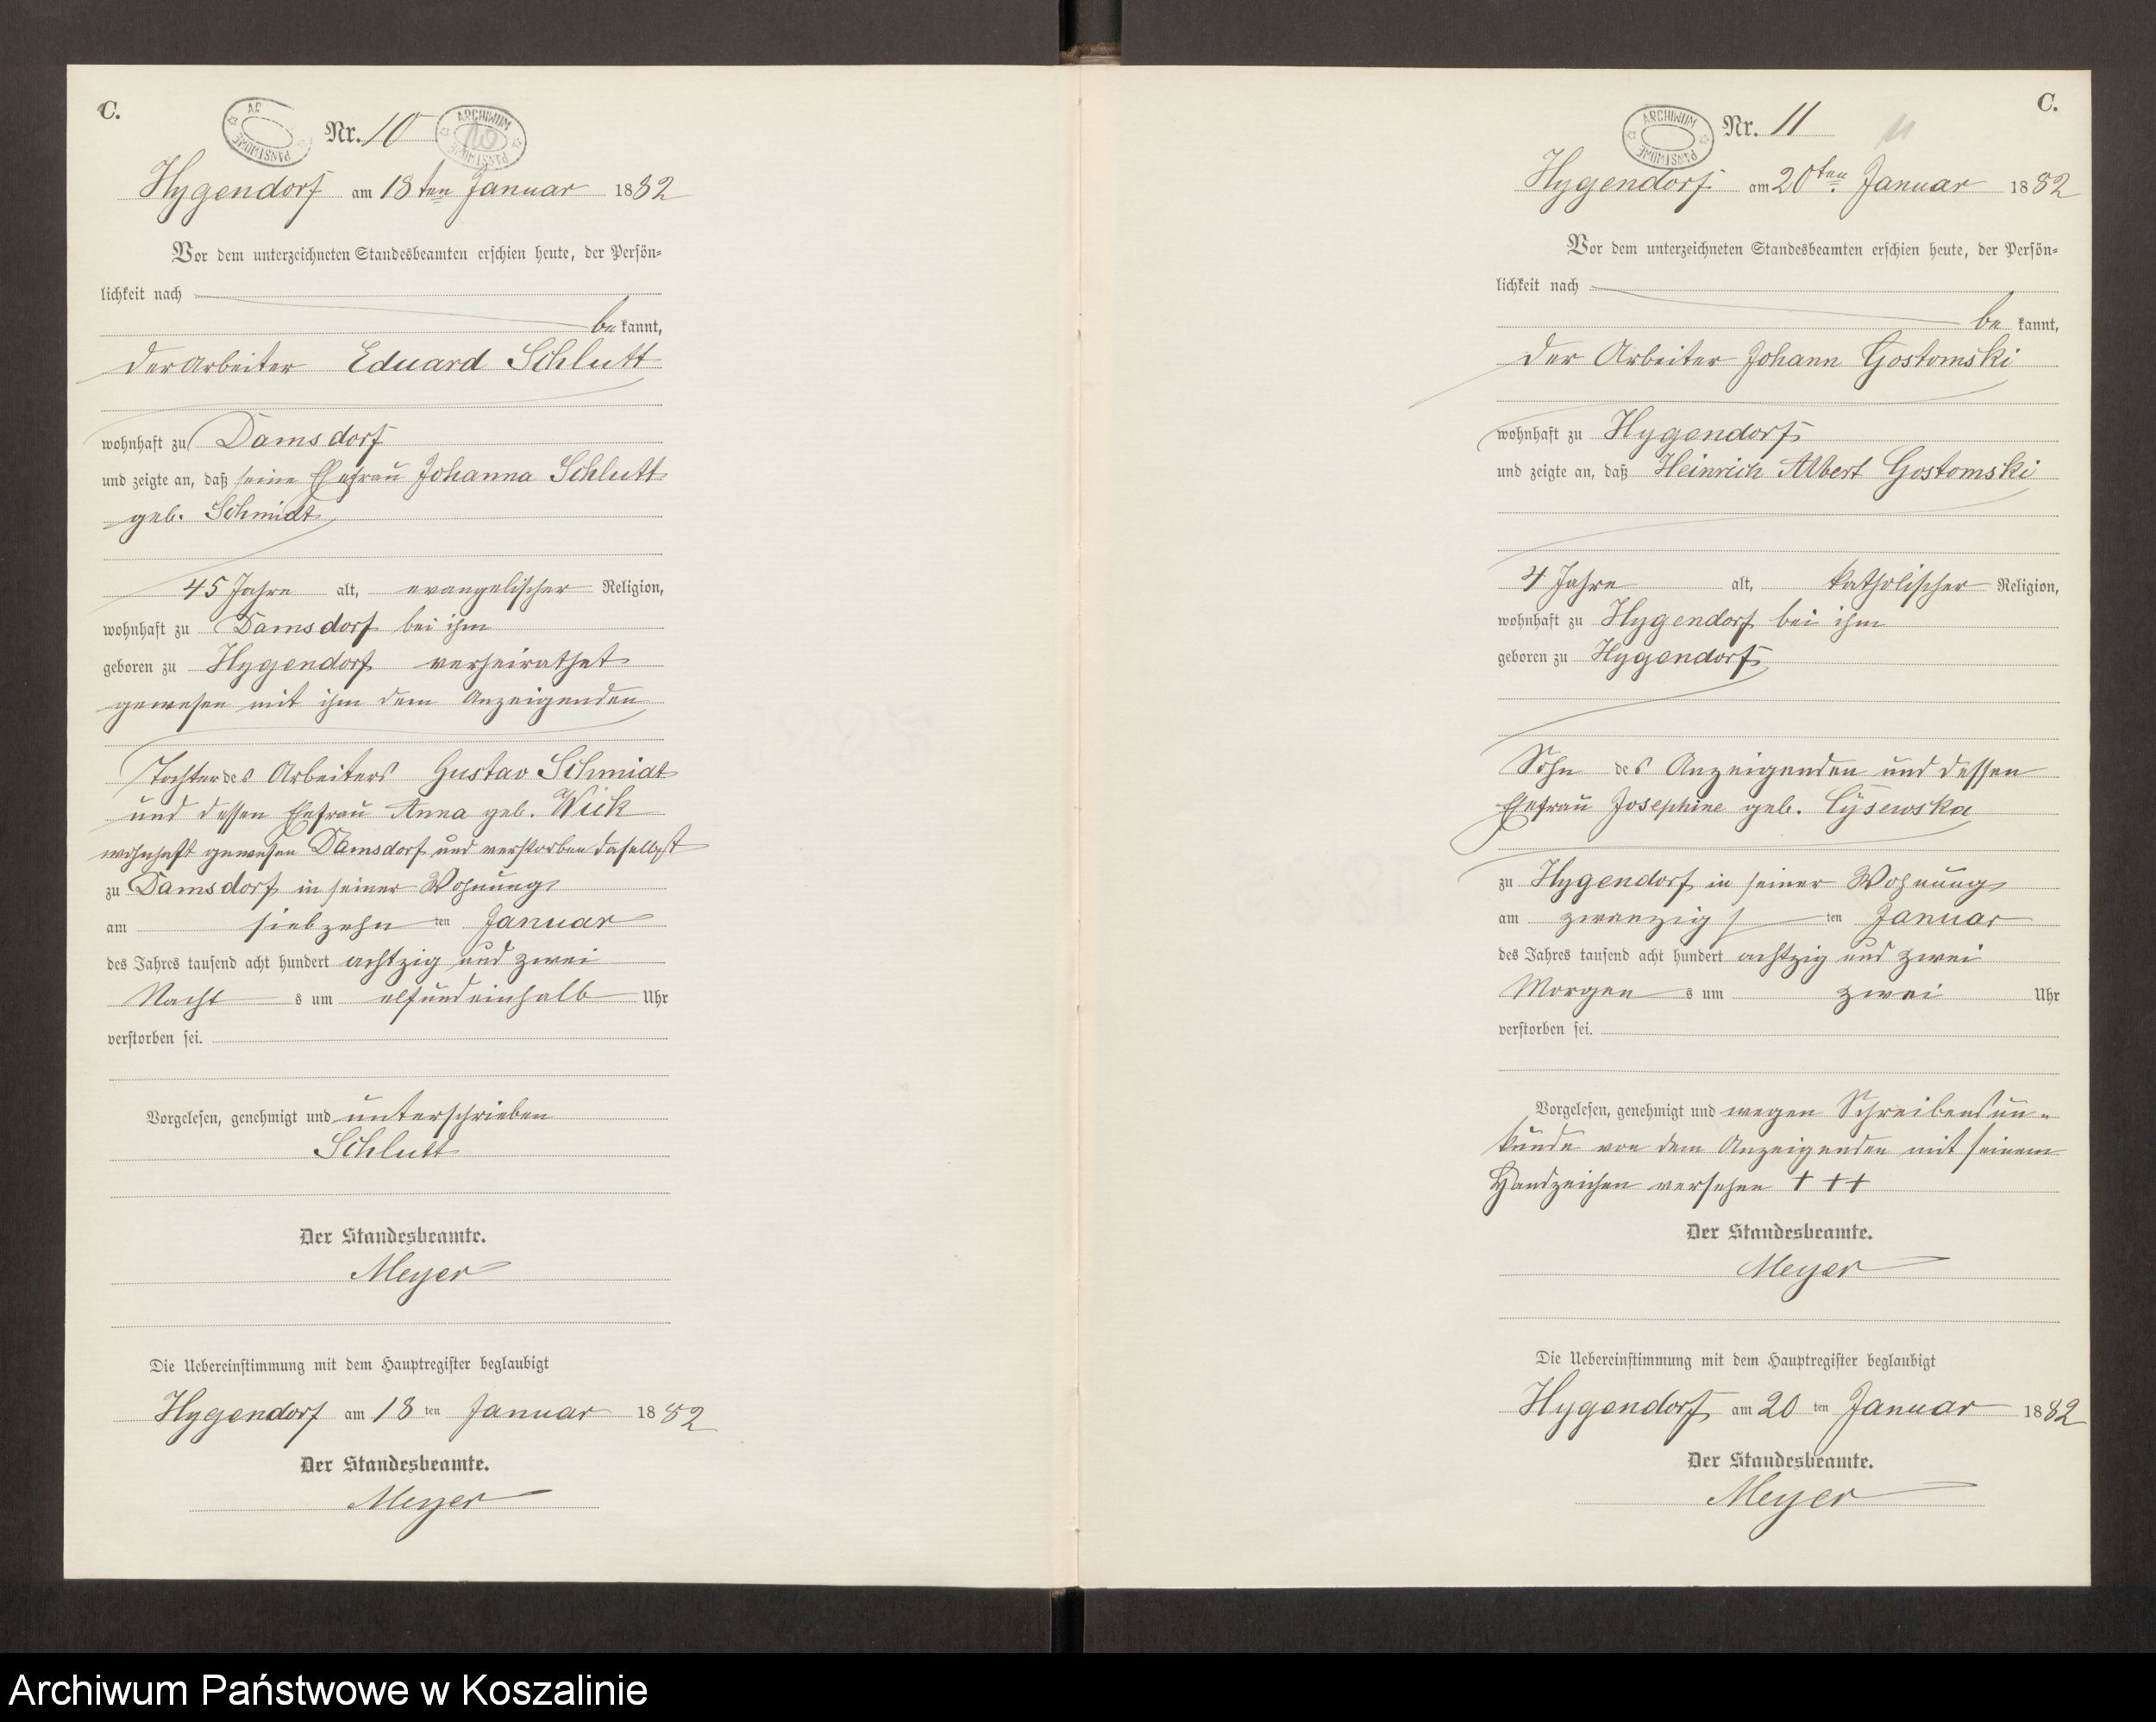 C.
Nr. 10
ARCHIWUM
PAŃSTWOWE
10
Hygendorf am 18ten Januar 1882
Vor dem unterzeichneten Standesbeamten erschien heute, der Persön-
lichkeit nach
be kannt,
der Arbeiter Eduard Schlutt
wohnhaft zu Damsdorf
und zeigte an, daß seine Ehefrau Johanna Schlutt
geb. Schmidt
45 Jahre alt, evangelischer Religion,
wohnhaft zu Damsdorf bei ihm
geboren zu Hygendorf verheirathet
gewesen mit ihm dem Anzeigenden
Tochter des Arbeiters Gustav Schmidt
und dessen Ehefrau Anna geb. Wick
wohnhaft gewesen Damsdorf und verstorben daselbst
zu Damsdorf in seiner Wohnung
am siebzehn ten Januar
des Jahres tausend acht hundert achtzig und zwei
Nacht s um elfundeinhalb Uhr
verstorben sei.
Vorgelesen, genehmigt und unterschrieben
Schlutt
Der Standesbeamte.
Meyer
Die Uebereinstimmung mit dem Hauptregister beglaubigt
Hygendorf am 18 ten Januar 1882
Der Standesbeamte.
Meyer
C.
ARCHIWUM
PAŃSTWOWE
Nr. 11
11
Hygendorf am 20ten Januar 1882
Vor dem unterzeichneten Standesbeamten erschien heute, der Persön-
lichkeit nach
be kannt,
der Arbeiter Johann Gostomski
wohnhaft zu Hygendorf
und zeigte an, daß Heinrich Albert Gostomski
4 Jahre alt, katholischer Religion,
wohnhaft zu Hygendorf bei ihm
geboren zu Hygendorf
Sohn des Anzeigenden und dessen
Ehefrau Josephine geb. Cysewska
zu Hygendorf in seiner Wohnung
am zwanzigs ten Januar
des Jahres tausend acht hundert achtzig und zwei
Morgen s um zwei Uhr
verstorben sei.
Vorgelesen, genehmigt und wegen Schreibensun-
kunde von dem Anzeigenden mit seinem
Handzeichen versehen + + +
Der Standesbeamte.
Meyer
Die Uebereinstimmung mit dem Hauptregister beglaubigt
Hygendorf am 20 ten Januar 1882
Der Standesbeamte.
Meyer
Archiwum Państwowe w Koszalinie